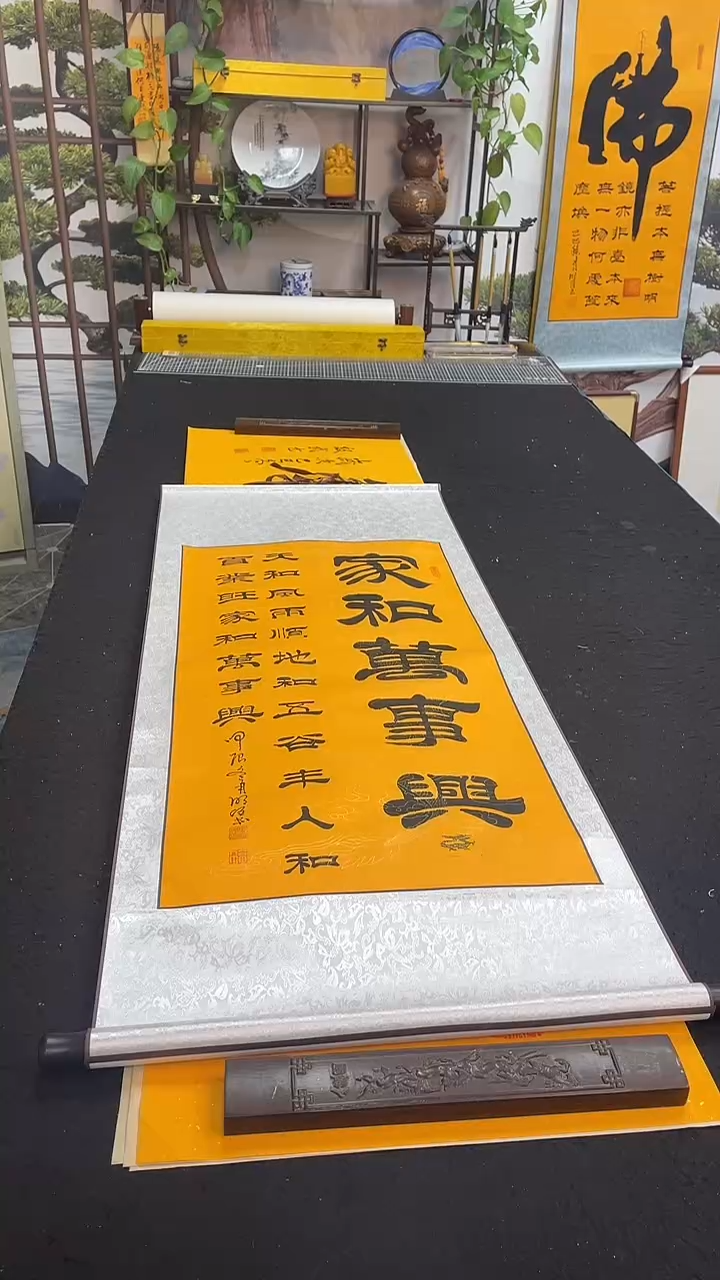 家和萬事興
天和風雨順地和五谷丰人和
百業旺家和萬事興
佛
菩提本無樹明
鏡亦非臺本來
無一物何處惹
塵埃